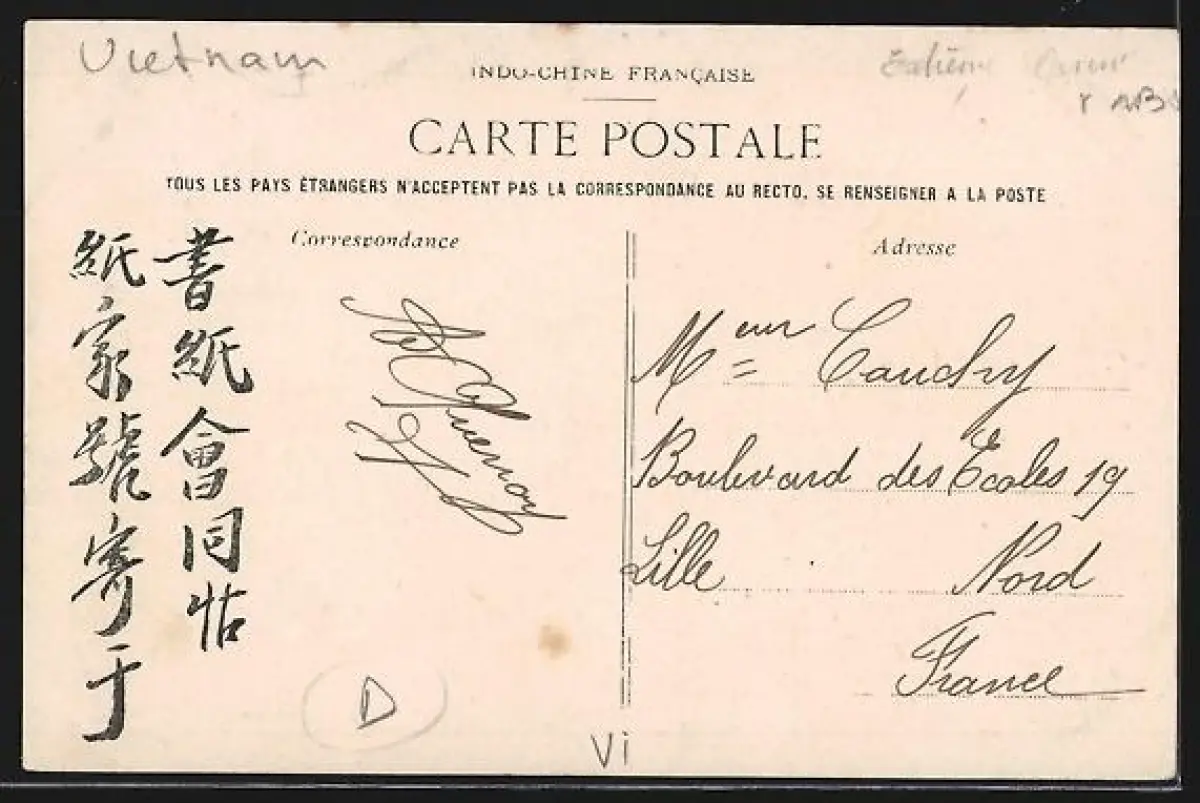 Vietnam
INDO-CHINE FRANÇAISE
CARTE POSTALE
TOUS LES PAYS ÉTRANGERS N'ACCEPTENT PAS LA CORRESPONDANCE AU RECTO, SE RENSEIGNER A LA POSTE
Correspondance
書紙會同帖
紙家號寄于
Adresse
Meur Cauchy
Boulevard des Ecoles 19
Lille Nord
France
D
Vi